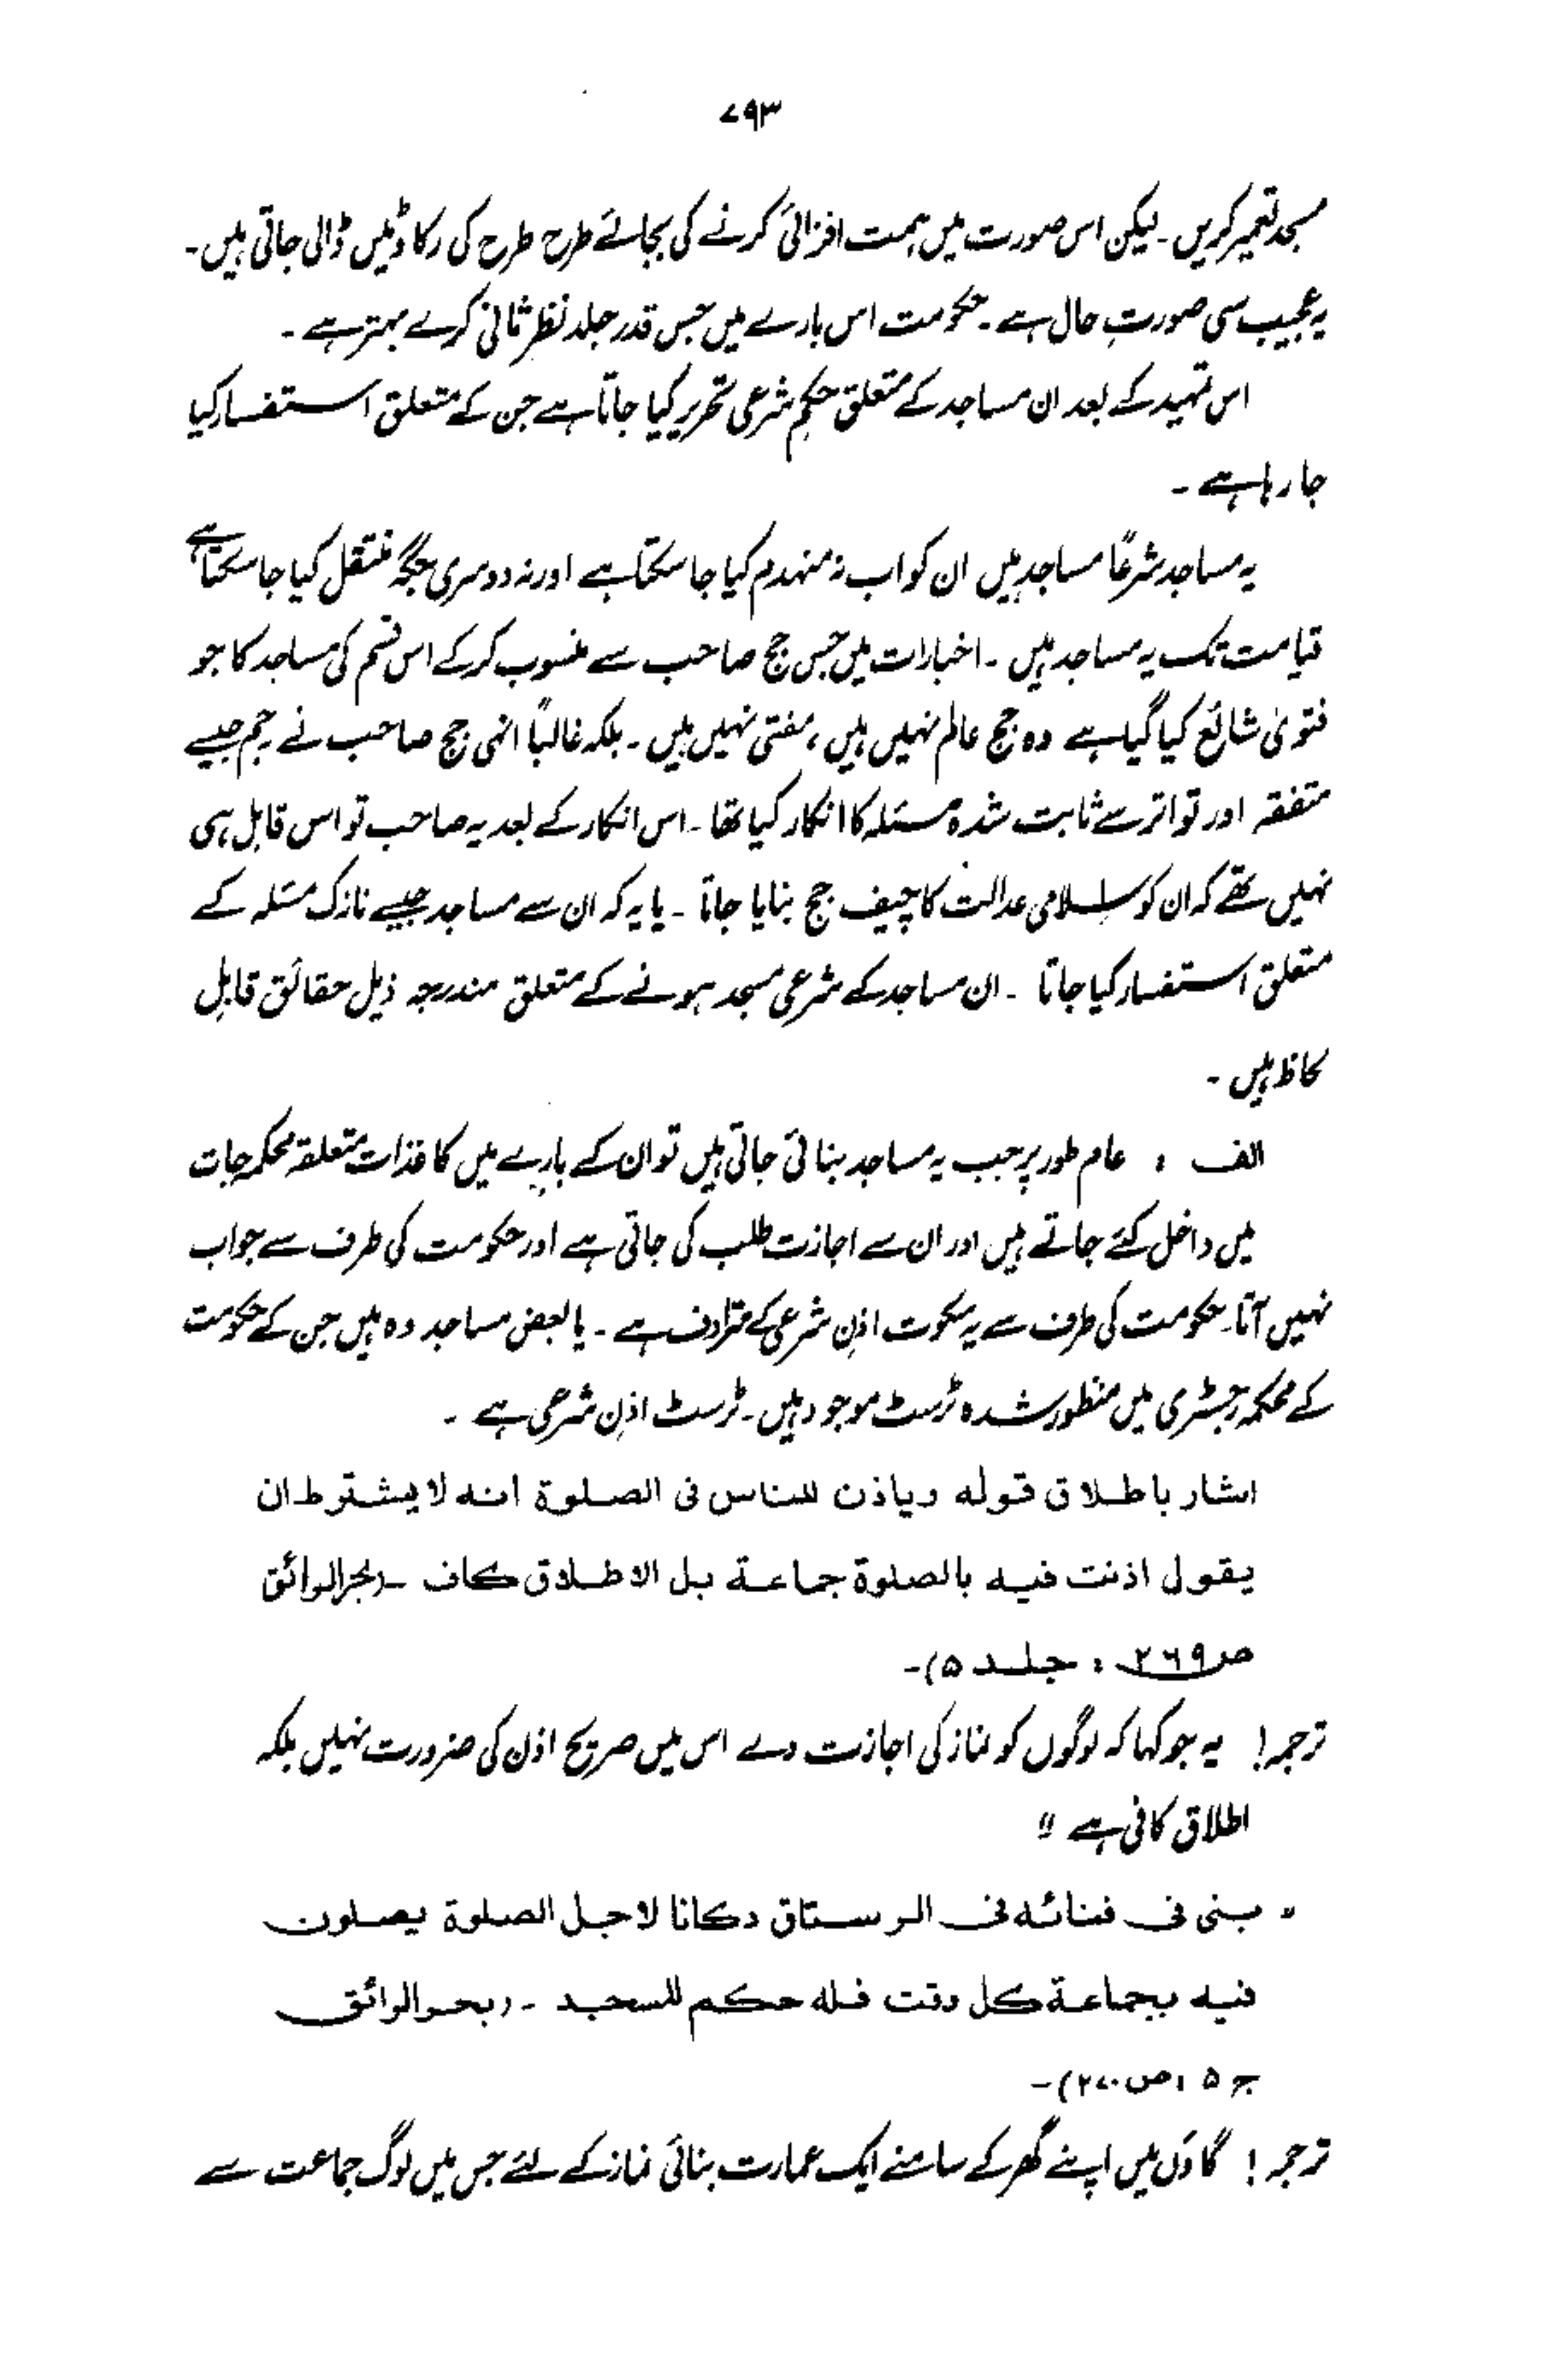 ۷۹۳
مسجد تعمیر کریں۔ لیکن اس صورت میں ہمت افزائی کرنے کی بجائے طرح طرح کی رکاوٹیں ڈالی جاتی ہیں۔
یہ عجیب سی صورتِ حال ہے۔ حکومت اس بارے میں جس قدر جلد نظر ثانی کرے بہتر ہے۔
اس تمہید کے بعد ان مساجد کے متعلق حکمِ شرعی تحریر کیا جاتا ہے جن کے متعلق استفسار کیا
جا رہا ہے۔
یہ مساجد شرعاً مساجد ہیں ان کو اب نہ منہدم کیا جا سکتا ہے اور نہ دوسری جگہ منتقل کیا جا سکتا ہے
قیامت تک یہ مساجد ہیں۔ اخبارات میں جس جج صاحب سے منسوب کرکے اس قسم کی مساجد کا جو
فتویٰ شائع کیا گیا ہے وہ جج عالم نہیں ہیں، مفتی نہیں ہیں۔ بلکہ غالباً انہی جج صاحب نے رجم جیسے
متفقہ اور تواتر سے ثابت شدہ مسئلہ کا انکار کیا تھا۔ اس انکار کے بعد یہ صاحب تو اس قابل ہی
نہیں تھے کہ ان کو اسلامی عدالت کا چیف جج بنایا جاتا۔ یا یہ کہ ان سے مساجد جیسے نازک مسئلہ کے
متعلق استفسار کیا جاتا۔ ان مساجد کے شرعی مسجد ہونے کے متعلق مندرجہ ذیل حقائق قابلِ
لحاظ ہیں۔
الف : عام طور پر جب یہ مساجد بنائی جاتی ہیں تو ان کے بارے میں کاغذات متعلقہ محکمہ جات
میں داخل کئے جاتے ہیں اور ان سے اجازت طلب کی جاتی ہے اور حکومت کی طرف سے جواب
نہیں آتا۔ حکومت کی طرف سے یہ سکوت اذنِ شرعی کے مترادف ہے۔ یا بعض مساجد وہ ہیں جن کے حکومت
کے محکمہ رجسٹری میں منظور شدہ ٹرسٹ موجود ہیں۔ ٹرسٹ اذنِ شرعی ہے۔
اشار باطلاق قوله ویاذن للناس فی الصلوة انه لا یشترط ان
یقول اذنت فیه بالصلوة جماعة بل الاطلاق کاف ـ (بحر الرائق
ص ۲۶۹ : جلد ۵)۔
ترجمہ! یہ جو کہا کہ لوگوں کو نماز کی اجازت دے اس میں صریح اذن کی ضرورت نہیں بلکہ
اطلاق کافی ہے "
" بنی فی فنائه فی الرستاق دکانا لاجل الصلوة یصلون
فیه بجماعة کل وقت فله حکم المسجد ـ (بحر الرائق
ج ۵ ، ص ۲۷۰)۔
ترجمہ! گاؤں میں اپنے گھر کے سامنے ایک عمارت بنائی نماز کے لئے جس میں لوگ جماعت سے